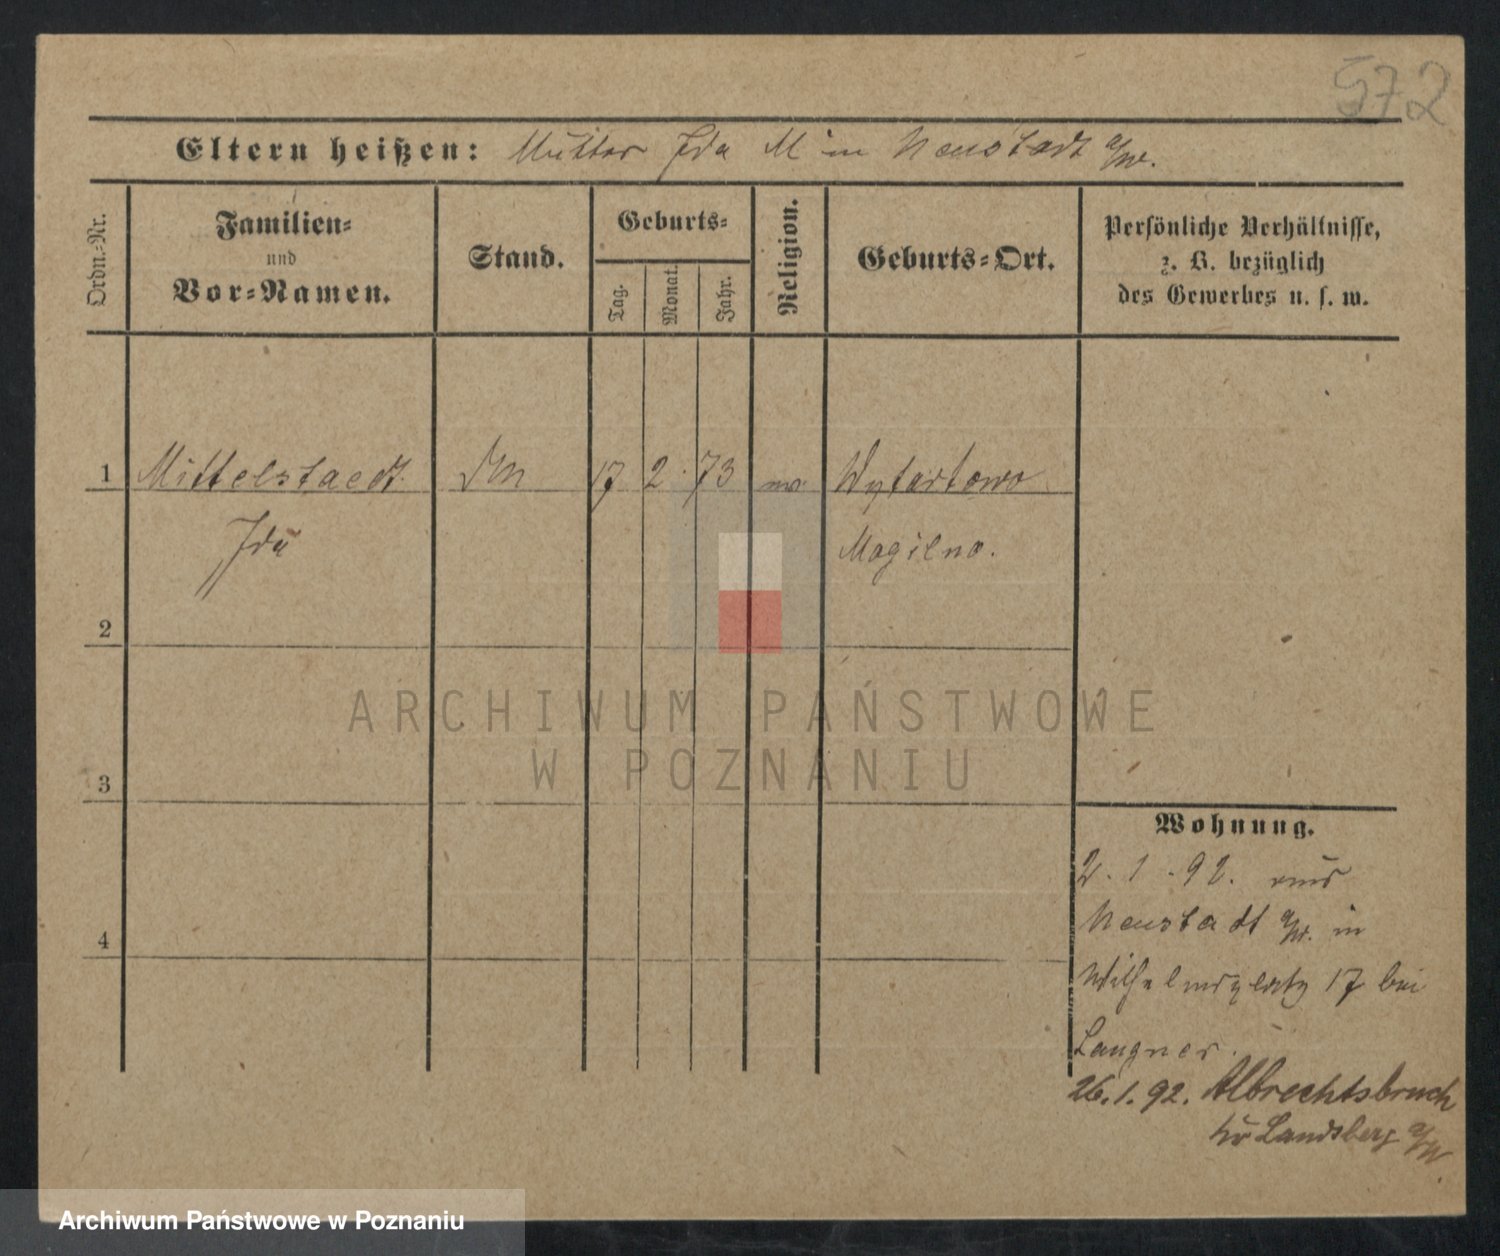 572
Eltern heißen: Mutter Ida M in Neustadt a/W.
Ordn.-Nr.
Familien-
und
Vor-Namen.
Stand.
Geburts-
Tag.
Monat.
Jahr.
Religion.
Geburts-Ort.
Persönliche Verhältnisse,
z. B. bezüglich
des Gewerbes u. s. w.
1 Mittelstaedt 17 2 73 ev
Ida Mogilno.
2
3
4
ARCHIWUM PAŃSTWOWE
W POZNANIU
Wohnung.
2. 1. 92. aus
Neustadt a/W. in
Wilhelmsplatz 17 bei
Langner.
26.1.92. Albrechtsbruch
Kr Landsberg a/W.
Archiwum Państwowe w Poznaniu